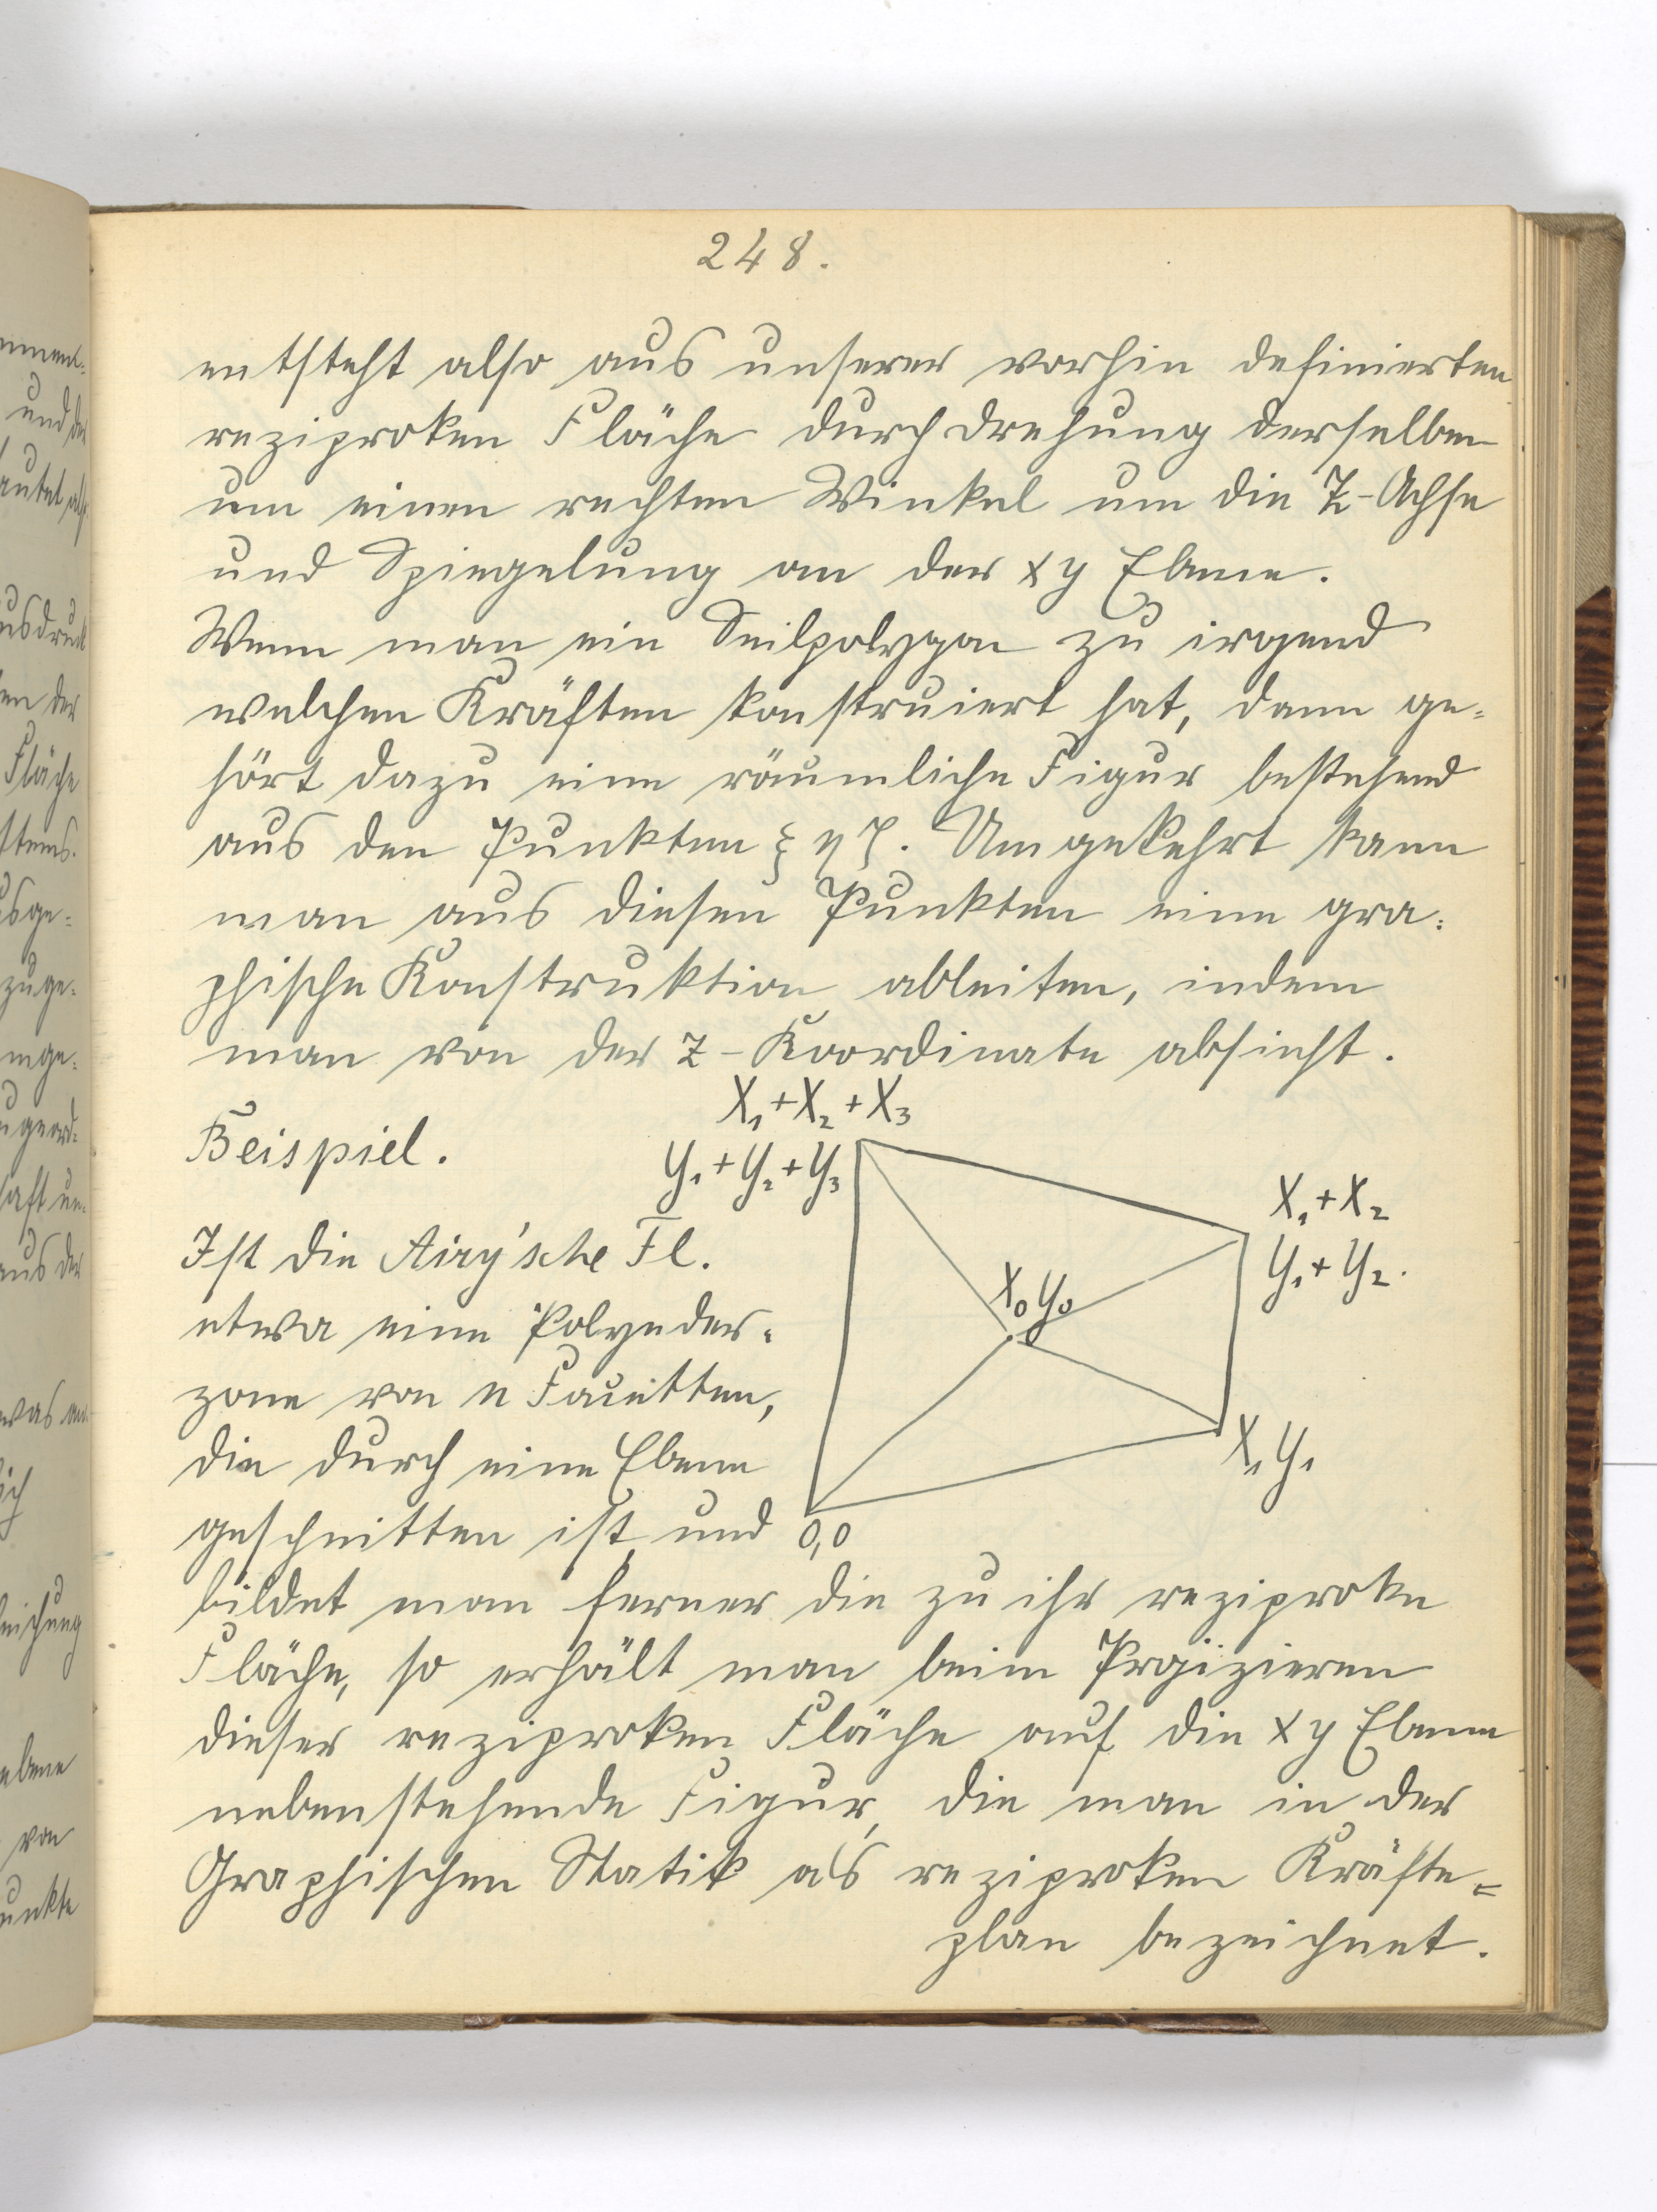 248.
entsteht also aus unserer vorhin definierten
reziproken Fläche durch Drehung derselben
um einen rechten Winkel um die Z-Achse
und Spiegelung an der xy Ebene.
Wenn man ein Seilpolygon zu irgend
welchen Kräften konstruiert hat, dann ge-
hört dazu eine räumliche Figur bestehend
aus den Punkten ξ η ζ. Umgekehrt kann
man aus diesen Punkten eine gra-
phische Konstruktion ableiten, indem
man von der z-Koordinate absieht.
Beispiel.
X₁+X₂+X₃
Y₁+Y₂+Y₃
X₁+X₂
Y₁+Y₂.
X₀Y₀
X₁Y₁
0,0
Ist die Airy'sche Fl.
etwa eine Polyeder-
zone von n Facetten,
die durch eine Ebene
geschnitten ist, und
bildet man ferner die zu ihr reziproke
Fläche, so erhält man beim Projizieren
dieser reziproken Fläche auf die xy Ebene
nebenstehende Figur, die man in der
Graphischen Statik als reziproken Kräfte-
plan bezeichnet.
und der
Fläche
aus der
von